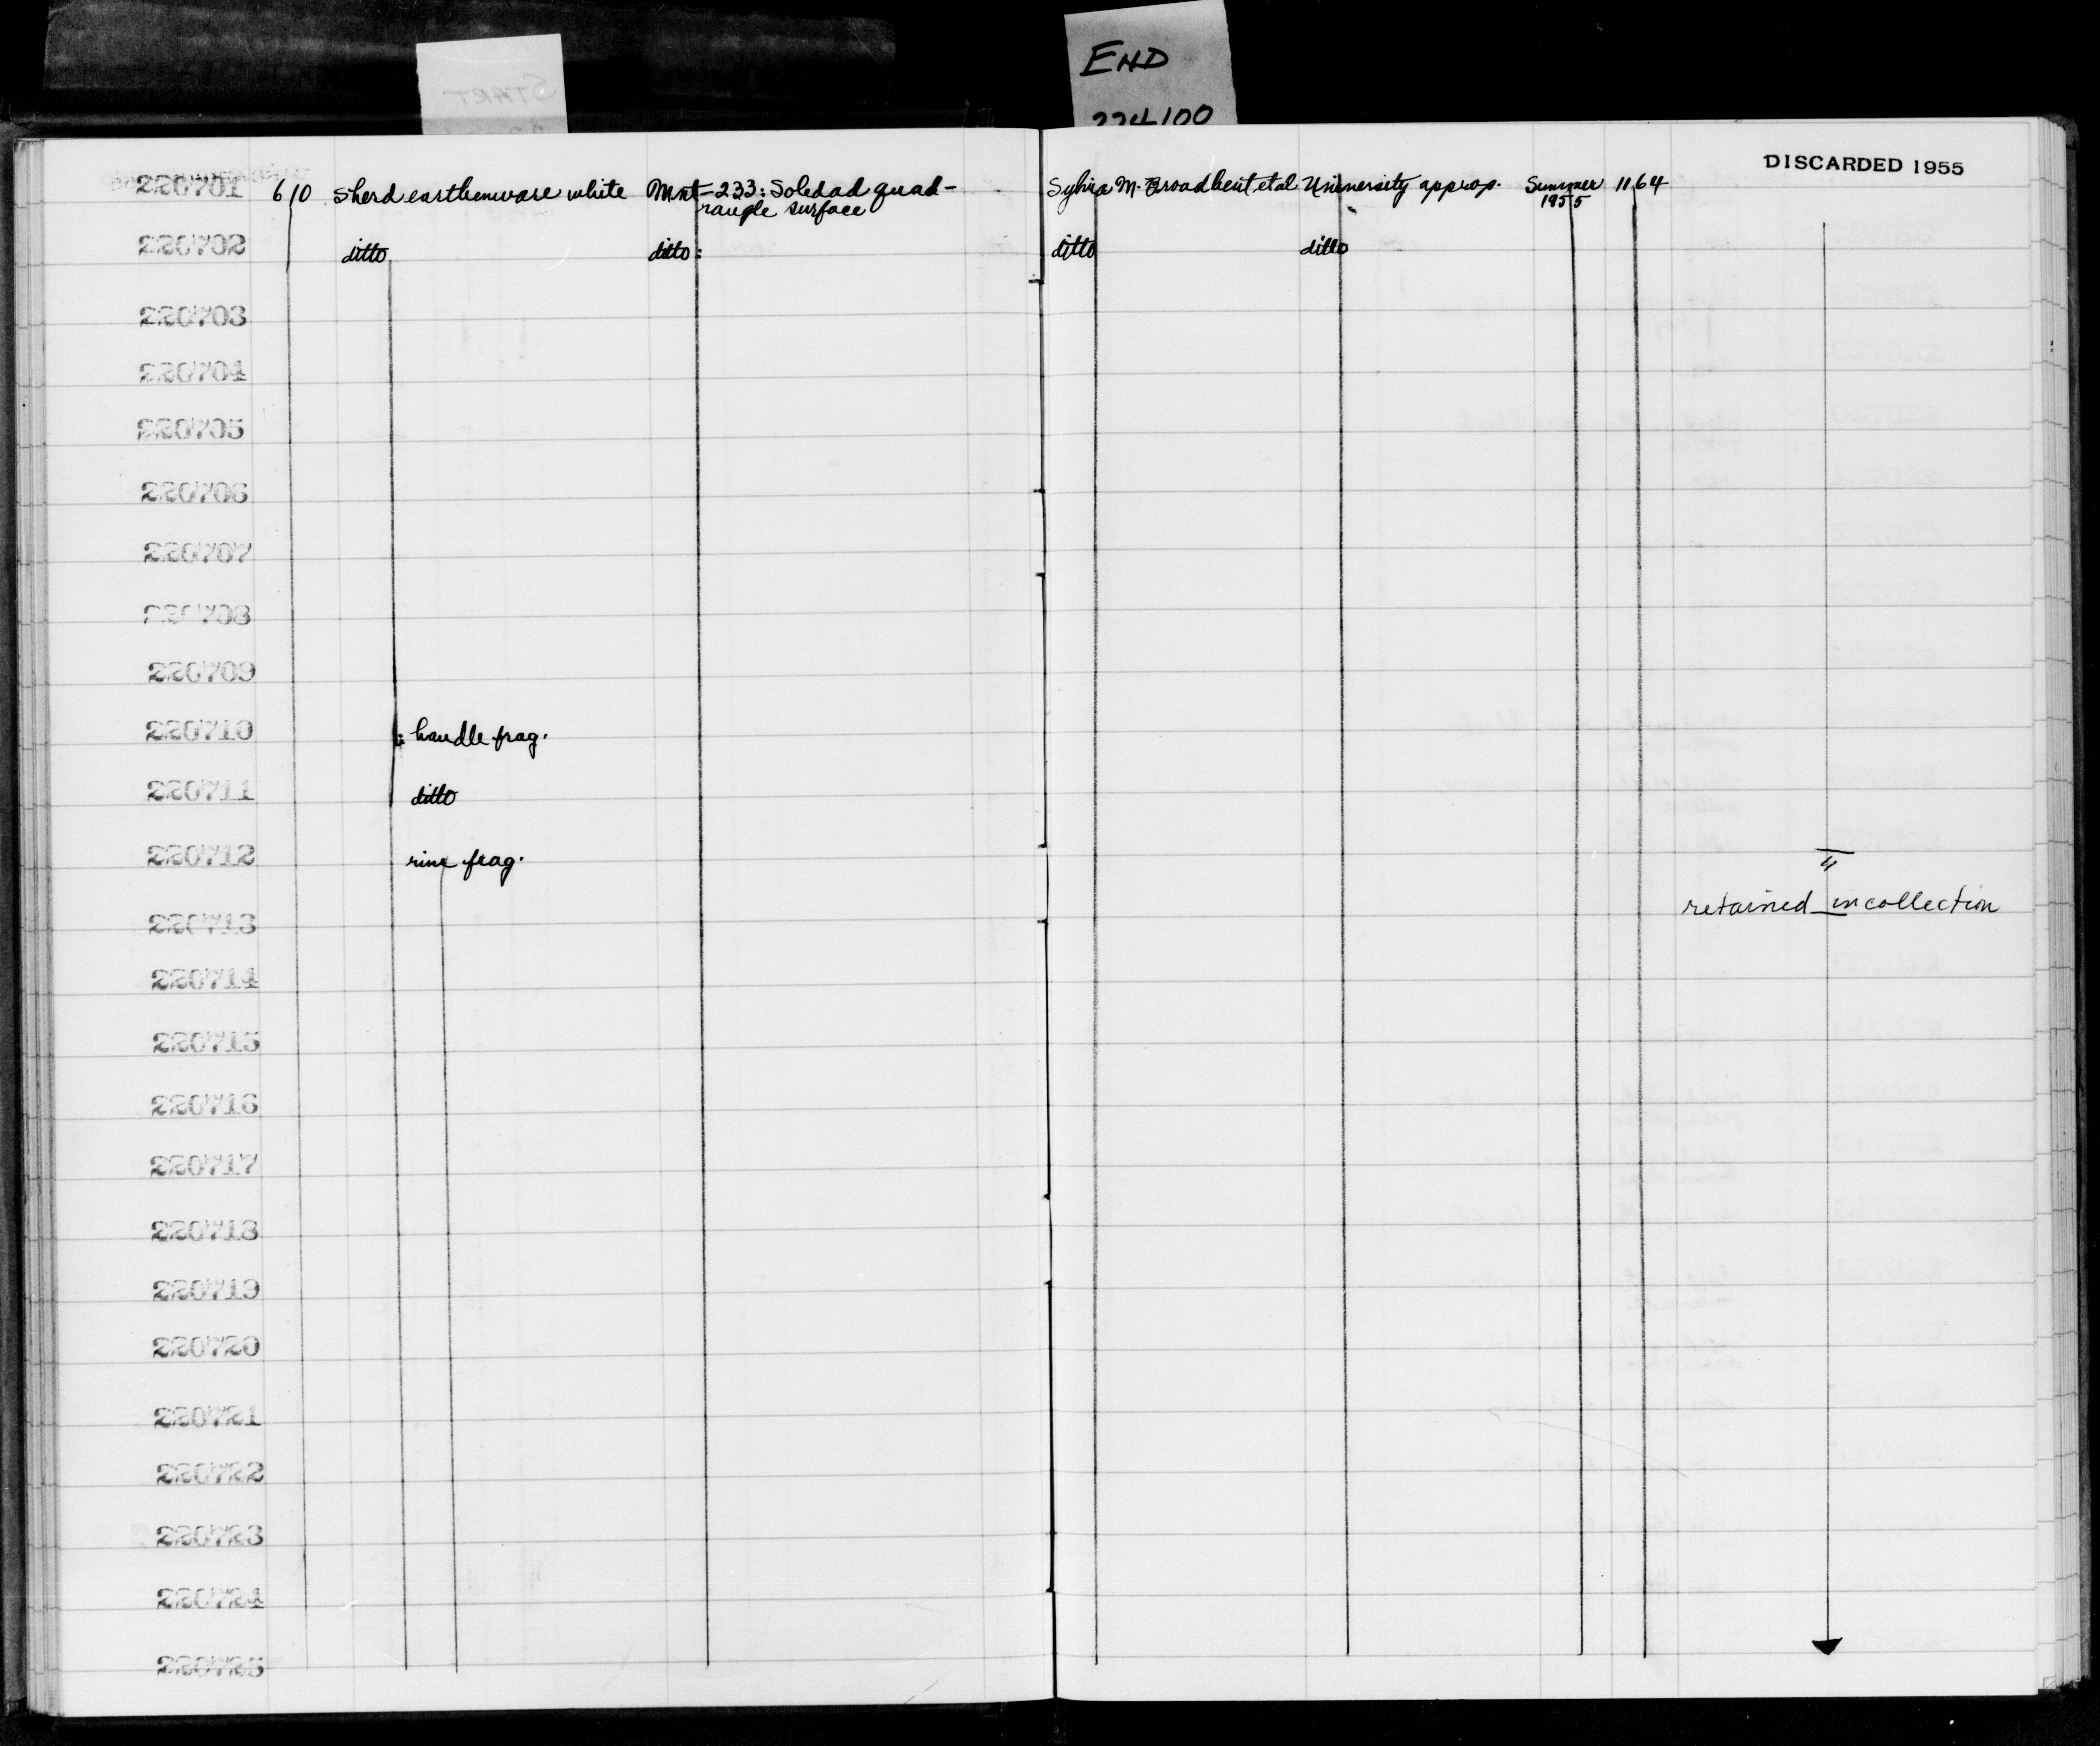 END
224100
START
DISCARDED 1955
220701 610 Sherd earthenware white Mnt-233: Soledad quad- Sylvia M. Broadbent et al University approp. Summer 1164
rangle surface 1955
220702 ditto ditto: ditto ditto
220703
220704
220705
220706
220707
220708
220709
220710 : handle frag.
220711 ditto
220712 rim frag. "
retained in collection
220713
220714
220715
220716
220717
220718
220719
220720
220721
220722
220723
220724
220725